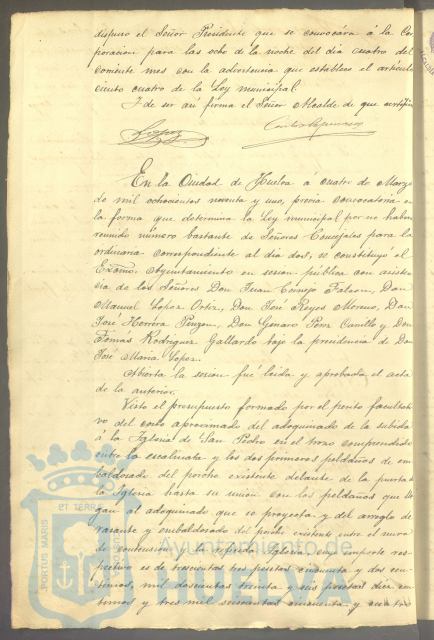 dispuso el Señor Presidente que se convocára á la Cor
poracion para las ocho de la noche del dia cuatro del
corriente mes con la advertencia que establece el artículo
ciento cuatro de la Ley municipal.
I de ser así firma el Señor Alcalde de que certifico
Lopez
En la Ciudad de Huelva á cuatro de Marzo
de mil ochocientos noventa y uno, previa convocatoria en
la forma que determina la Ley municipal por no haberse
reunido número bastante de Señores Concejales para la
ordinaria correspondiente al dia dos, se constituyó el
Excmo. Ayuntamiento en sesion pública con asisten
cia de los Señores Don Juan Cornejo Don
Manuel Lopez Ortiz, Don José Reyes Moreno, Don
José Herrera Pinzon, Don Genaro Perez Carrillo y Don
Tomás Rodriguez Gallardo bajo la presidencia de Don
José Maria Lopez.
Abierta la sesion fué leida y aprobada el acta
de la anterior.
Visto el presupuesto formado por el perito facultati
vo del costo aproximado del adoquinado de la subida
á la Iglesia de San Pedro en el trozo comprendido
entre la escalinata y los dos primeros peldaños de em
baldosado del porche existente delante de la puerta de
la Iglesia hasta su union con los peldaños que lle
gan al adoquinado que se proyecta y del arreglo de
rasante y embaldosado del porche existente entre el muro
de contension y la referida Iglesia, cuyo importe res
pectivo es de trescientas tres pesetas cincuenta y dos cen
timos, mil doscientas treinta y seis pesetas diez cen
timos y tres mil seiscientas cincuenta y cuatro
PORTUS MARIS
ET TERRAE
Ayuntamiento de
HUELVA